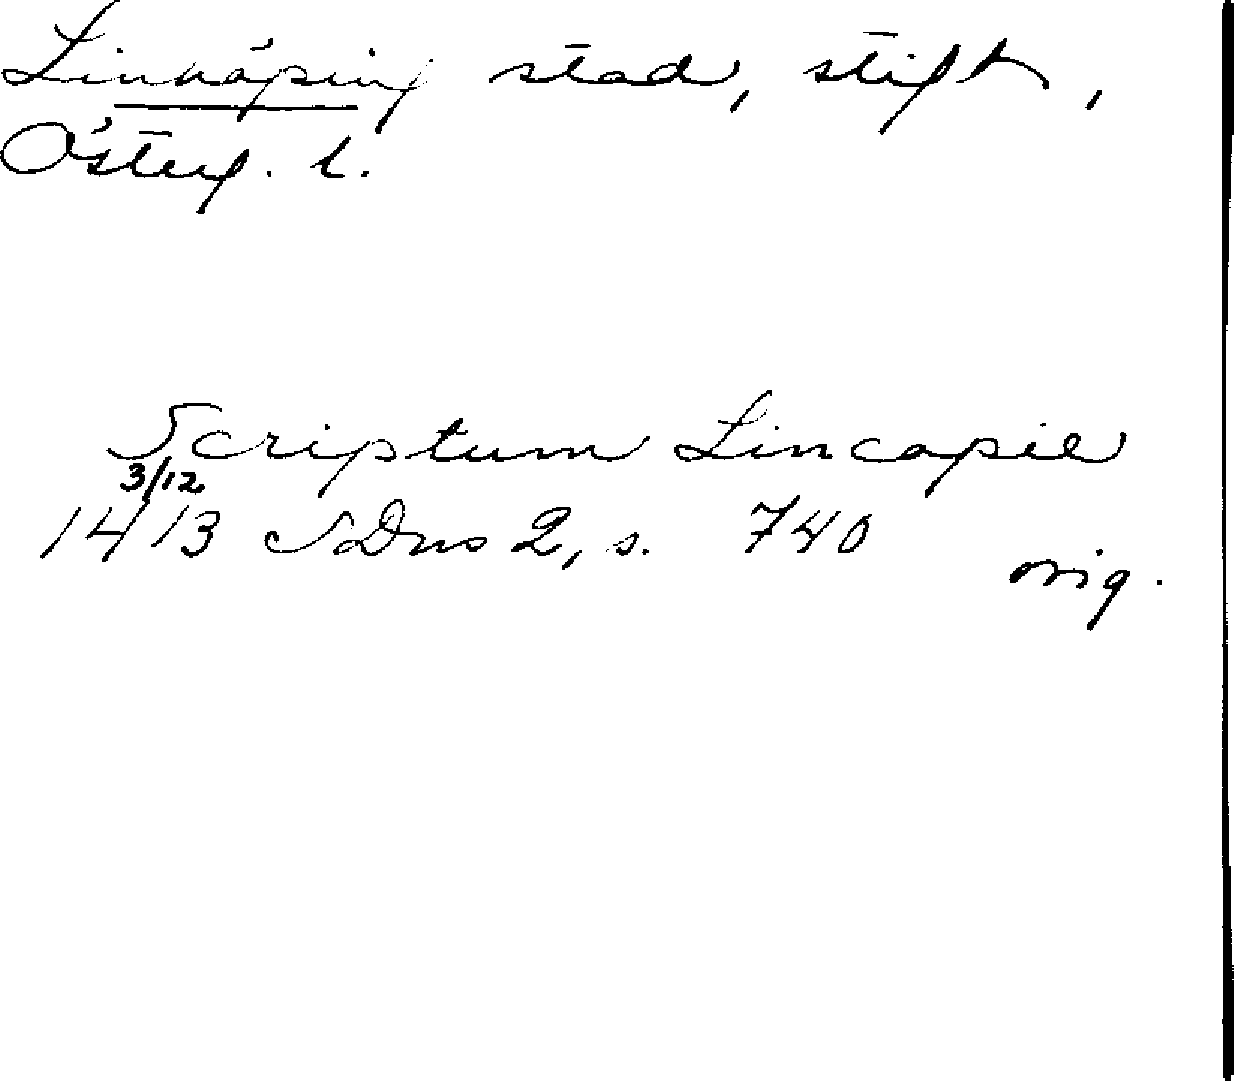 Linköping stad, stift,
Österg. l.
Scriptum Lincopie
3/12
1413 SDns 2, s. 740
orig.